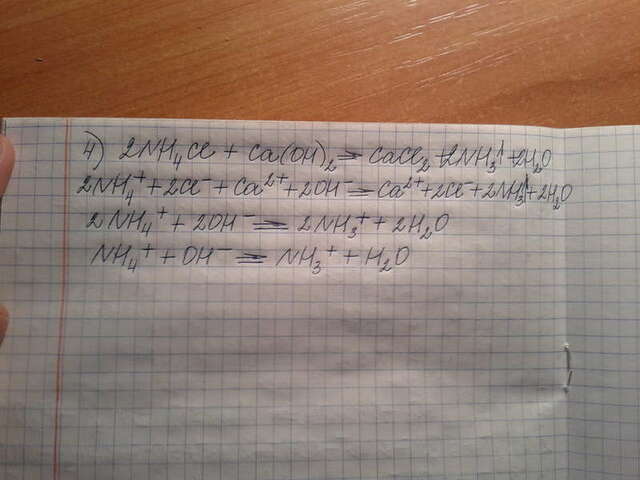 4) 2NH₄Cl + Ca(OH)₂ = CaCl₂ + 2NH₃↑ + 2H₂O
2NH₄⁺ + 2Cl⁻ + Ca²⁺ + 2OH⁻ = Ca²⁺ + 2Cl⁻ + 2NH₃↑ + 2H₂O
2NH₄⁺ + 2OH⁻ = 2NH₃⁺ + 2H₂O
NH₄⁺ + OH⁻ = NH₃⁺ + H₂O